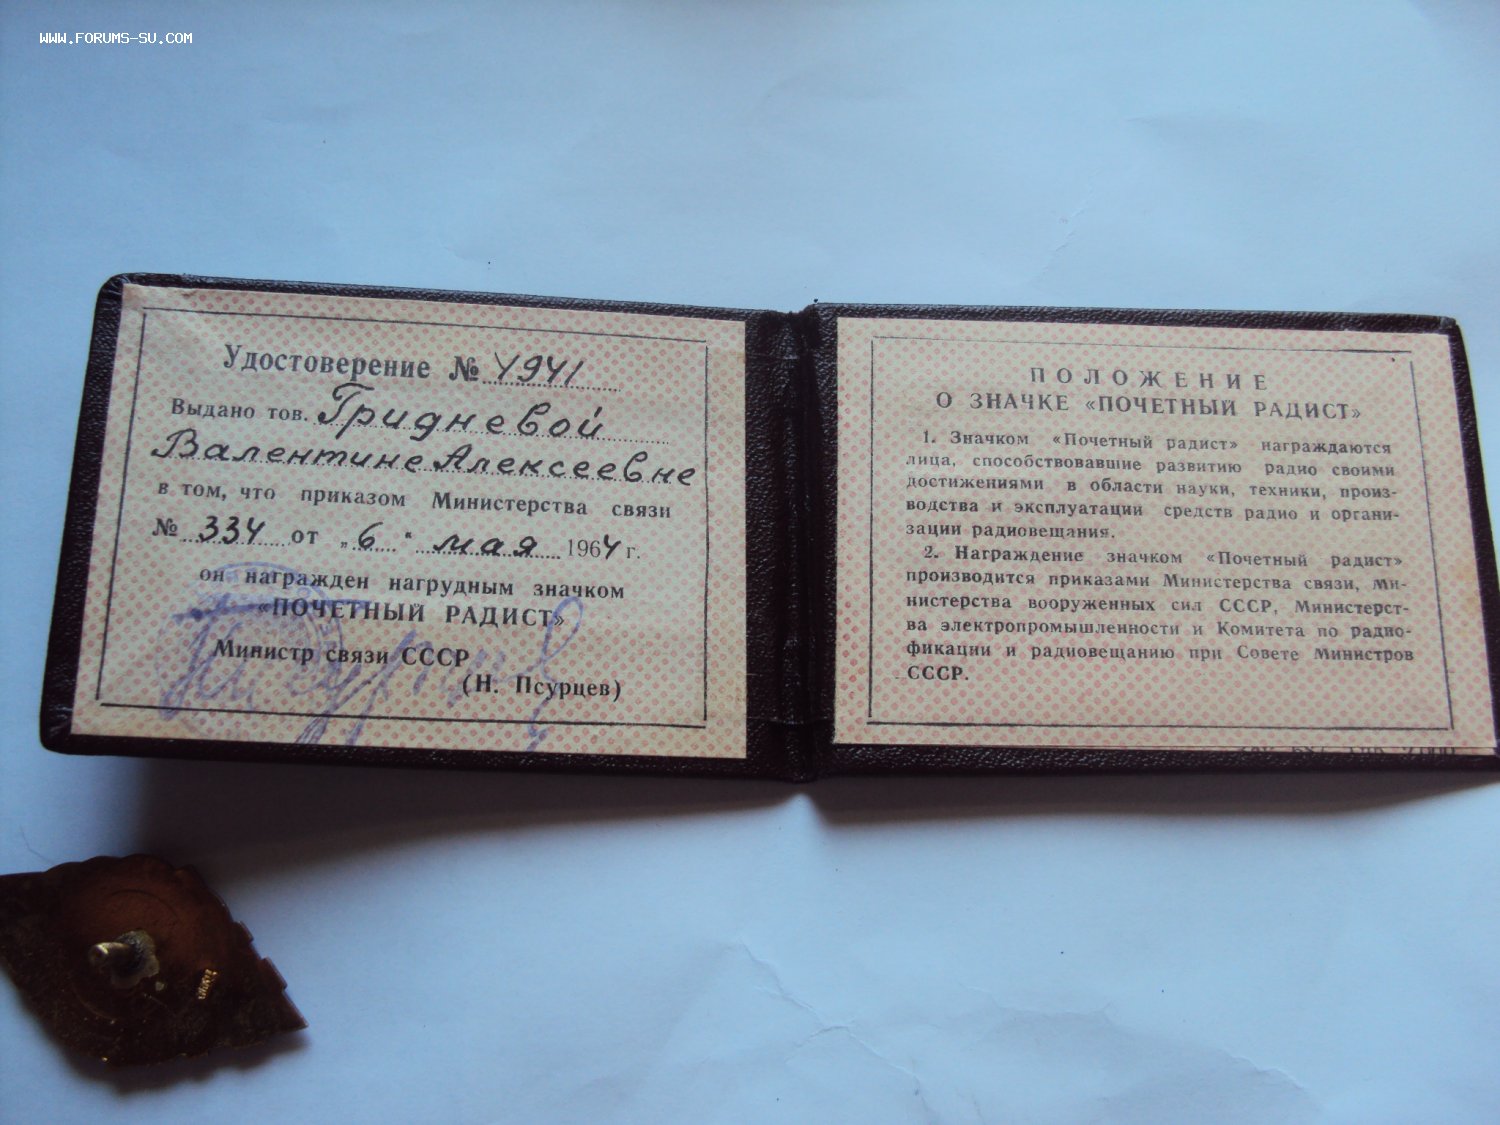 WWW.FORUMS-SU.COM
Удостоверение № 4941
Выдано тов. Гридневой
Валентине Алексеевне
в том, что приказом Министерства связи
№ 334 от „6“ мая 1964 г.
он награжден нагрудным значком
«ПОЧЕТНЫЙ РАДИСТ»
Министр связи СССР
(Н. Псурцев)
ПОЛОЖЕНИЕ
О ЗНАЧКЕ «ПОЧЕТНЫЙ РАДИСТ»
1. Значком «Почетный радист» награждаются
лица, способствовавшие развитию радио своими
достижениями в области науки, техники, произ-
водства и эксплуатации средств радио и органи-
зации радиовещания.
2. Награждение значком «Почетный радист»
производится приказами Министерства связи, Ми-
нистерства вооруженных сил СССР, Министерст-
ва электропромышленности и Комитета по радио-
фикации и радиовещанию при Совете Министров
СССР.